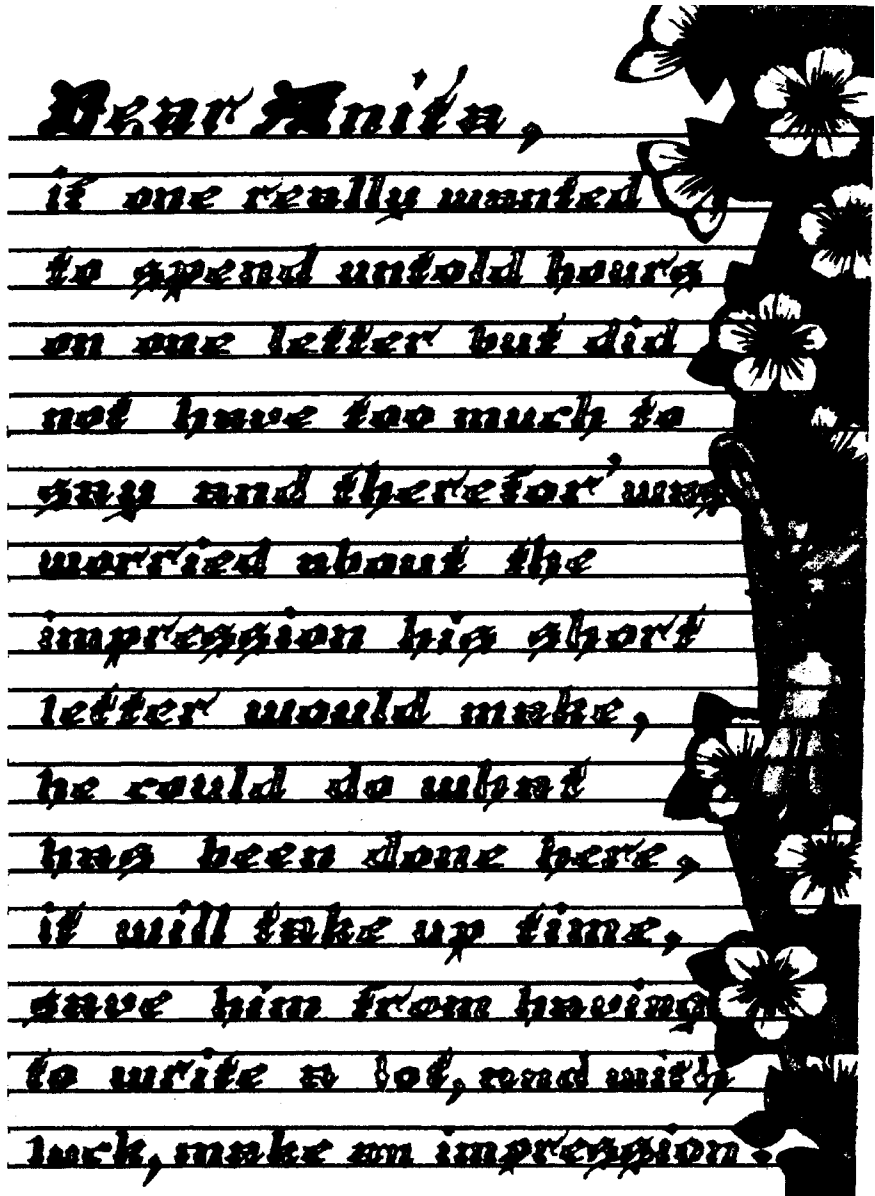 Dear Anita,
if one really wanted
to spend untold hours
on one letter but did
not have too much to
say and therefor' was
worried about the
impression his short
letter would make,
he could do what
has been done here,
it will take up time,
save him from having
to write a lot, and with
luck, make an impression.